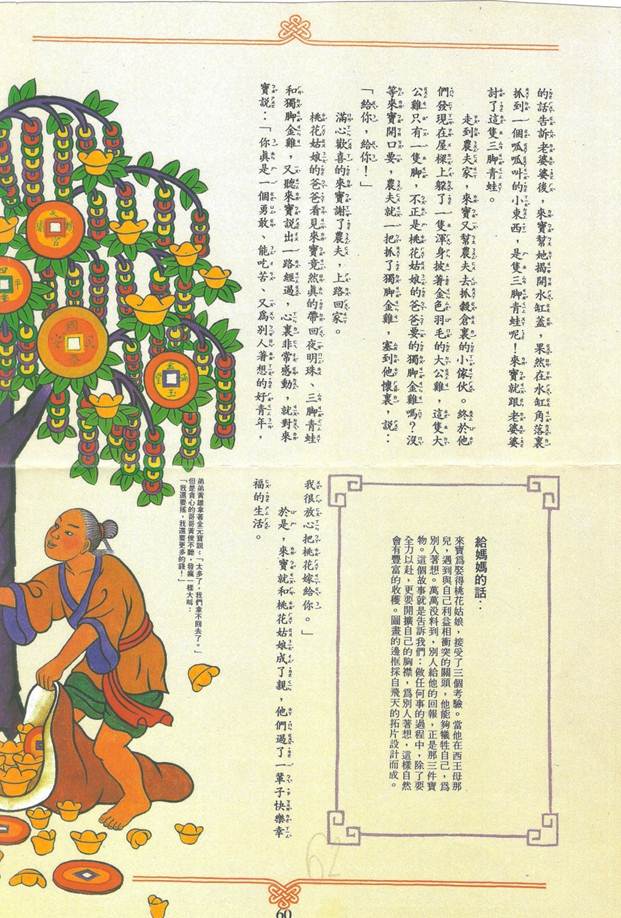 的話告訴老婆婆後，來寶幫她揭開水缸蓋，果然在水缸角落裏
抓到一個呱呱叫的小東西，是隻三脚青蛙呢！來寶就跟老婆婆
討了這隻三脚青蛙。
走到農夫家，來寶又幫農夫去抓穀倉裏的小傢伙。終於他
們發現在屋樑上躲了一隻渾身披著金色羽毛的大公雞，這隻大
公雞只有一隻脚，不正是桃花姑娘的爸爸要的獨脚金雞嗎？沒
等來寶開口要，農夫就一把抓了獨脚金雞，塞到他懷裏，說：
「給你，給你！」
滿心歡喜的來寶謝了農夫，上路回家。
桃花姑娘的爸爸看見來寶竟然真的帶回夜明珠、三脚青蛙
和獨脚金雞，又聽來寶說出一路經過，心裏非常感動，就對來
寶說：「你真是一個勇敢、能吃苦、又爲別人著想的好青年，
我很放心把桃花嫁給你。」
於是，來寶就和桃花姑娘成了親，他們過了一輩子快樂幸
福的生活。
給媽媽的話：
來寶爲娶得桃花姑娘，接受了三個考驗。當他在西王母那
兒，遇到與自己利益相衝突的關頭，他能夠犧牲自己，爲
別人著想。萬萬沒料到，別人給他的回報，正是那三件寶
物。這個故事就是告訴我們：做任何事的過程中，除了要
全力以赴，更要開擴自己的胸襟，爲別人著想，這樣自然
會有豐富的收穫。圖畫的邊框採自飛天的拓片設計而成。
弟弟黃雄拿著金元寶說：「太多了，我們拿不回去了。」
但是貪心的哥哥黃俊不聽，發瘋一樣大叫：
「我還要搖，我還要更多的錢！」
62
60